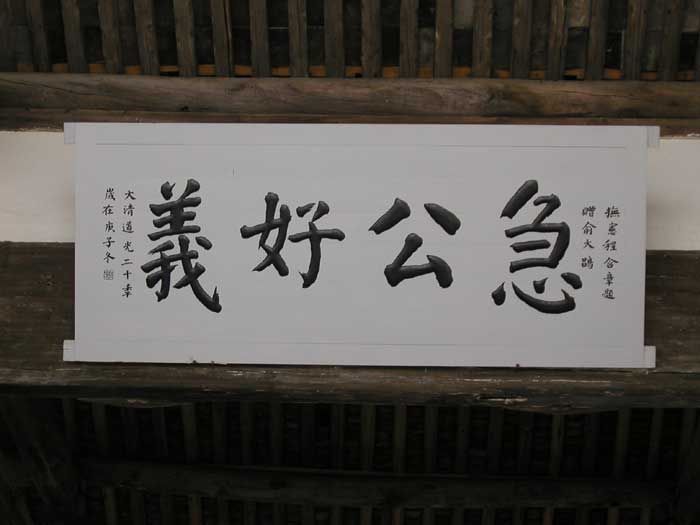 撫憲程含章題
贈俞大鵠
急公好義
大清道光二十年
歲在庚子冬